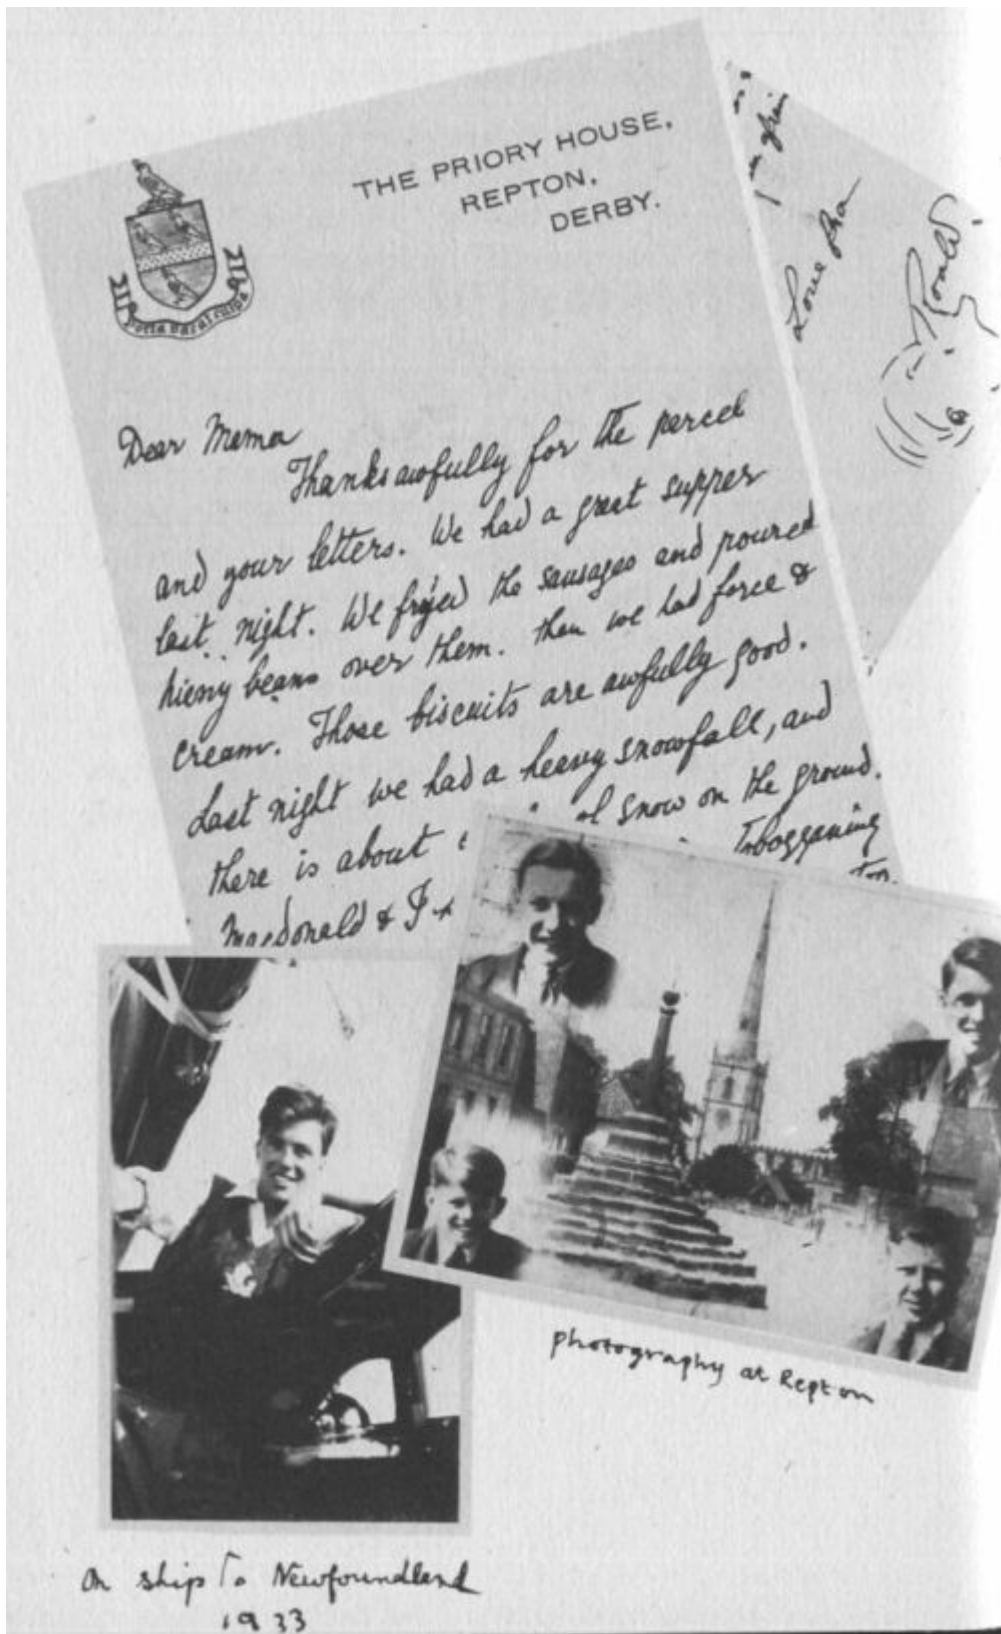 THE PRIORY HOUSE,
REPTON,
DERBY.
Porta Vacat Culpa
Dear Mama
Thanks awfully for the parcel
and your letters. We had a great supper
last night. We fryed the sausages and poured
hieny beans over them. then we had force &
cream. Those biscuits are awfully good.
Last night we had a heavy snowfall, and
there is about snow on the ground.
Tobogganing
Macdonald & I
Love from
Roald
photography at Repton
On ship to Newfoundland
1933